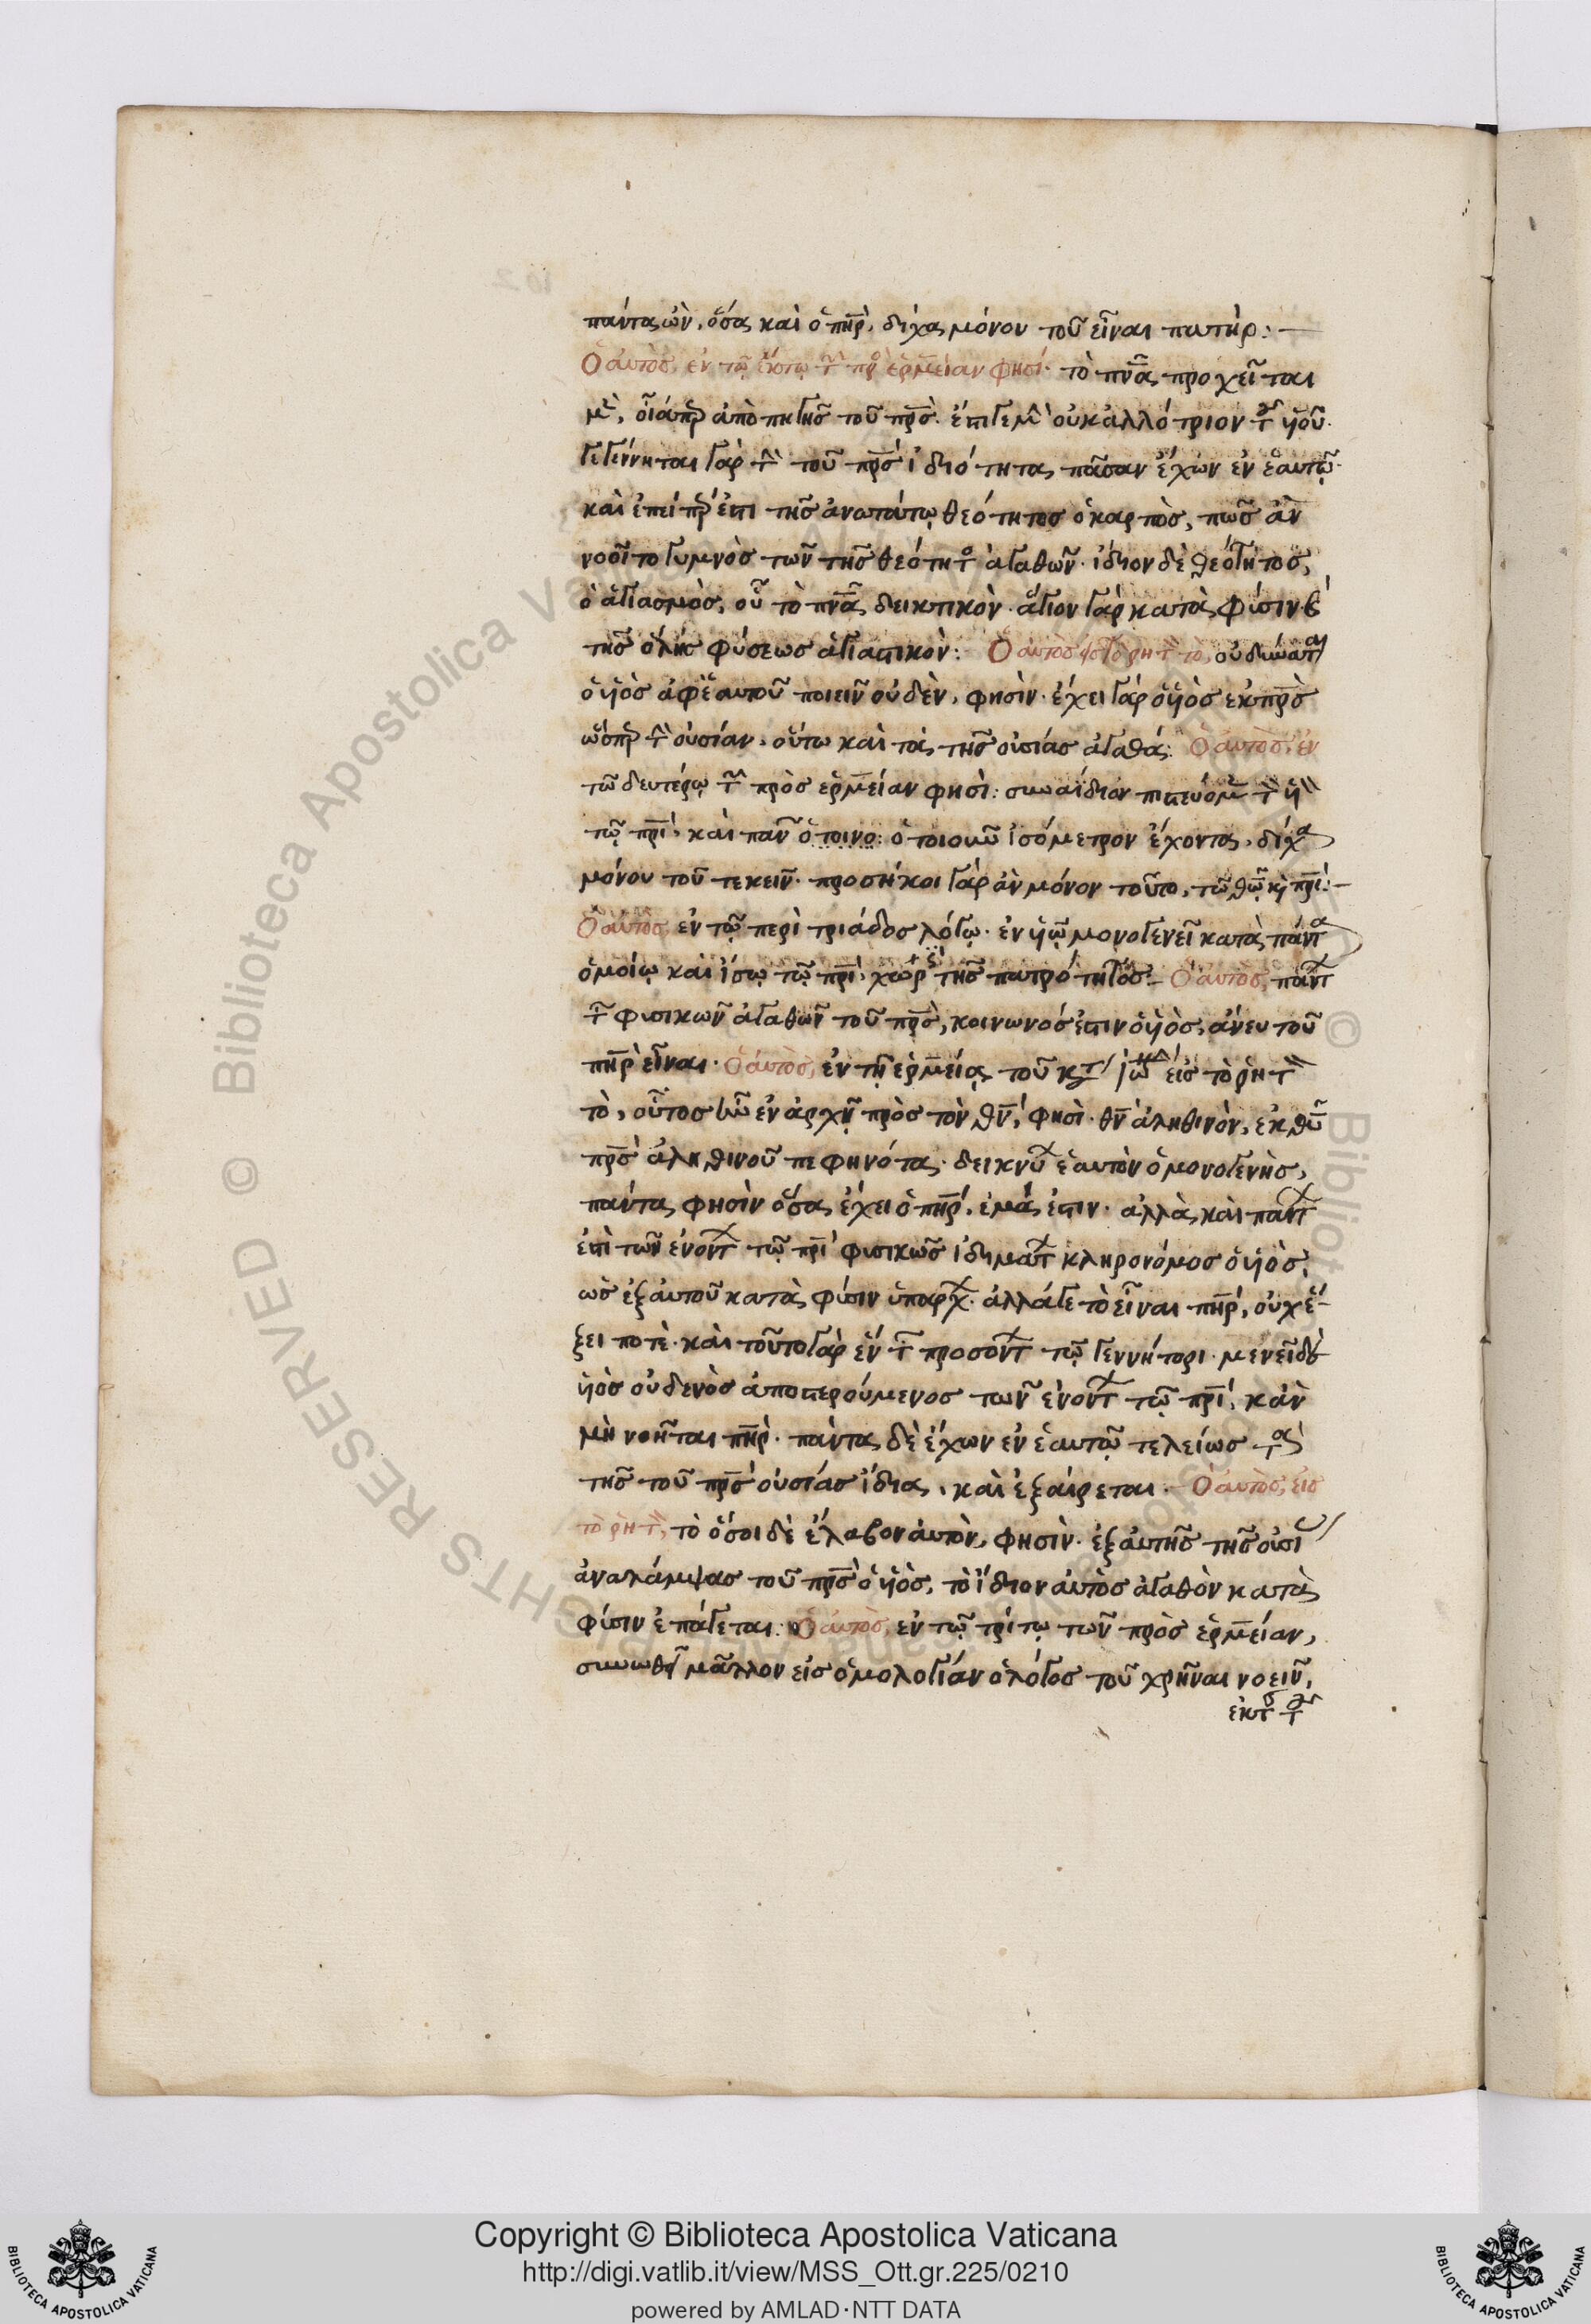 πάντα ὢν, ὅσα καὶ ὁ πηρ, δίχα μόνου τοῦ εἶναι πατήρ:
Ὁ αὐτὸς, ἐν τῷ ἕκτῳ τ πρ ἑρμείαν φησί· τὸ πνα προχεῖται
μὲν, οἷάπερ ἀπὸ πηγῆς τοῦ πρς. ἔστι γε μ οὐκ ἀλλότριον τ υἱοῦ.
γεγέννηται γὰρ τ τοῦ πρς ἰδιότητα πᾶσαν ἔχων ἐν ἑαυτῷ·
καὶ ἐπείπερ ἐστι τῆς ἀνωτάτω θεότητος ὁ καρπὸς, πῶς ἂν
νοοῖτο γυμνὸς τῶν τῆς θεότητ ἀγαθῶν· ἴδιον δὲ θεότητος,
ὁ ἁγιασμὸς, οὗ τὸ πνα δεικτικὸν. ἅγιον γὰρ κατὰ φύσιν κ
τῆς ὅλης φύσεως ἁγιαστικὸν: Ὁ αὐτὸς τὸ ρητ τὸ, οὐ δύναται
ὁ υἱὸς ἀφ' ἑαυτοῦ ποιεῖν οὐδὲν, φησὶν· ἔχει γὰρ ὁ υἱὸς ἐκ πρς
ὥσπερ τ οὐσίαν, οὕτω καὶ τὰ τῆς οὐσίας ἀγαθά: Ὁ αὐτὸς, ἐν
τῷ δευτέρῳ τ πρὸς ἑρμείαν φησὶ: συναΐδιον πιστεύομ τ υἱ
τῷ πρι, καὶ πᾶν ὁτοινο: ὁτοιοῦν ἰσόμετρον ἔχοντα, δίχα
μόνου τοῦ τεκεῖν· προσήκοι γὰρ ἂν μόνον τοῦτο, τῷ θῶ κ πρι:
Ὁ αὐτὸς, ἐν τῷ περὶ τριάδος λόγῳ· ἐν υἱῷ μονογενεῖ κατὰ πάντα
ὁμοίῳ καὶ ἴσῳ τῷ πρι, χωρὶς τῆς πατρότητος: Ὁ αὐτὸς, πάντ
τ φυσικῶν ἀγαθῶν τοῦ πρς, κοινωνός ἐστιν ὁ υἱὸς, ἄνευ τοῦ
πηρ εἶναι. Ὁ αὐτὸς, ἐν τῇ ἑρμείᾳ τοῦ κτ ἰω εἰς τὸ ρητ
τὸ, οὗτος ἦν ἐν ἀρχῇ πρὸς τὸν θν, φησὶ· θν ἀληθινὸν, ἐκ θυ
πρς ἀληθινοῦ πεφηνότα· δεικνὺ ἑαυτὸν ὁ μονογενὴς,
πάντα φησὶν ὅσα ἔχει ὁ πηρ, ἐμά ἐστιν· ἀλλὰ καὶ πάντ
ἐστὶ τῶν ἐνόντ τῷ πρι φυσικῶς ἰδιωμάτ κληρονόμος ὁ υἱὸς,
ὡς ἐξ αὐτοῦ κατὰ φύσιν ὑπάρχ· ἀλλά γε τὸ εἶναι πηρ, οὐχ ἕ-
ξει ποτὲ· καὶ τοῦτο γὰρ ἓν τ προσόντ τῷ γεννήτορι· μενεῖ δὲ
υἱὸς οὐδενὸς ἀποστερούμενος τῶν ἐνόντ τῷ πρι, κἂν
μὴ νοῆται πηρ· πάντα δὲ ἔχων ἐν ἑαυτῷ τελείως τὰ
τῆς τοῦ πρς οὐσίας ἴδια, καὶ ἐξαίρεται. Ὁ αὐτὸς, εἰς
τὸ ρητ, τὸ ὅσοι δὲ ἔλαβον αὐτὸν, φησὶν· ἐξ αὐτῆς τῆς οὐσί
ἀναλάμψας τοῦ πρς ὁ υἱὸς, τὸ ἴδιον αὐτὸς ἀγαθὸν κατὰ
φύσιν ἐπάγεται: Ὁ αὐτὸς, ἐν τῷ τρίτῳ τῶν πρὸς ἑρμείαν,
συνωθεῖ μᾶλλον εἰς ὁμολογίαν ὁ λόγος τοῦ χρῆναι νοεῖν,
ἐκτ τ
Copyright © Biblioteca Apostolica Vaticana
http://digi.vatlib.it/view/MSS_Ott.gr.225/0210
powered by AMLAD·NTT DATA